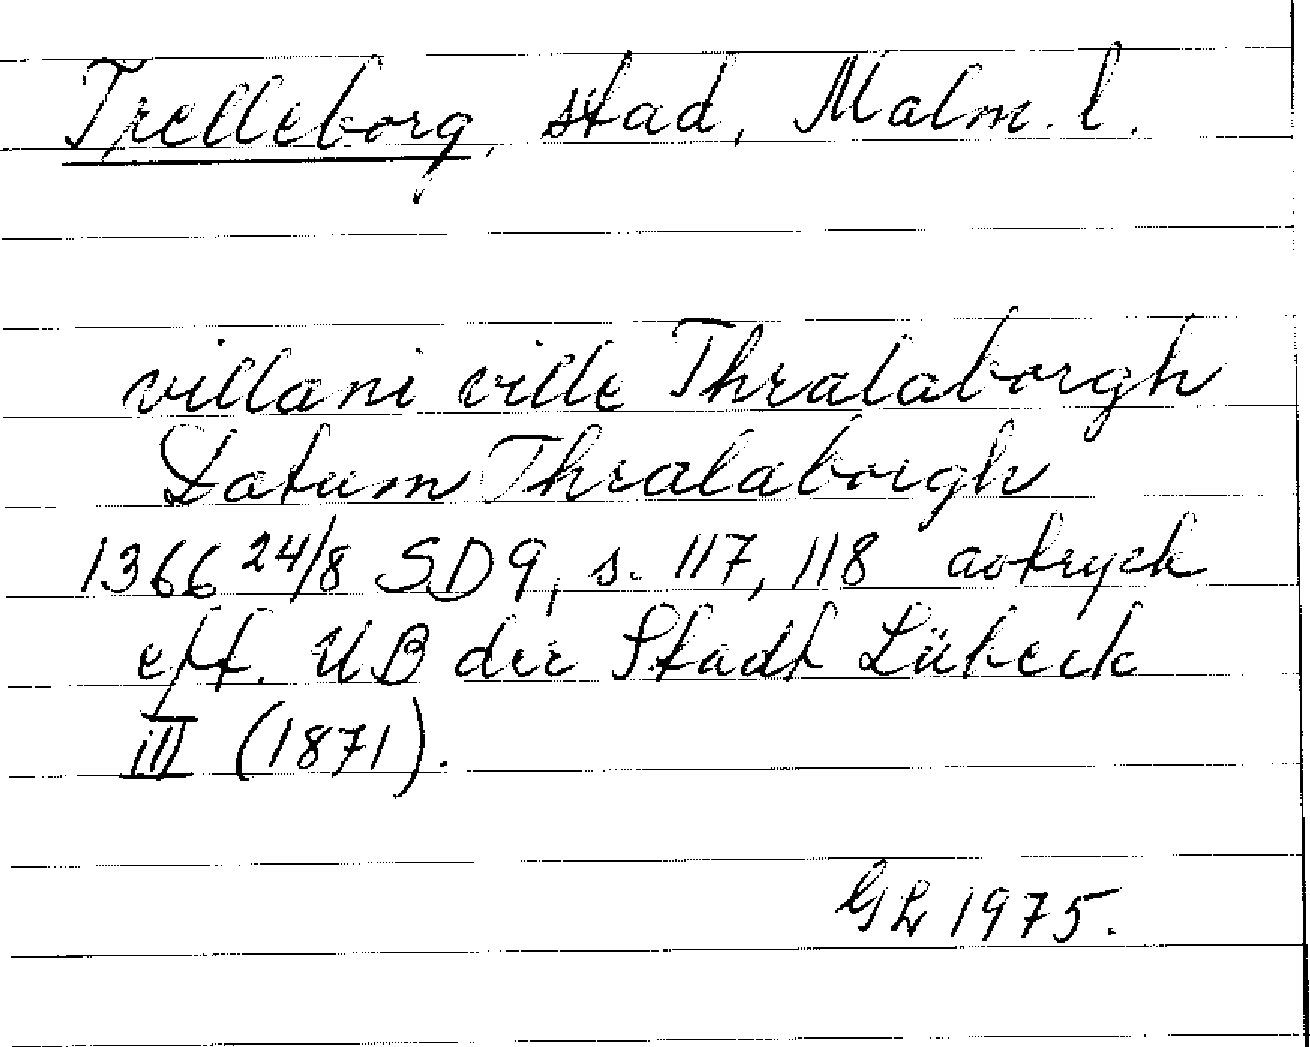 Trelleborg, stad, Malm. l.
villani ville Thralaborgh
Datum Thralaborgh
1366 24/8 SD 9, s. 117, 118 avtryck
eft. UB der Stadt Lübeck
III (1871).
GL 1975.